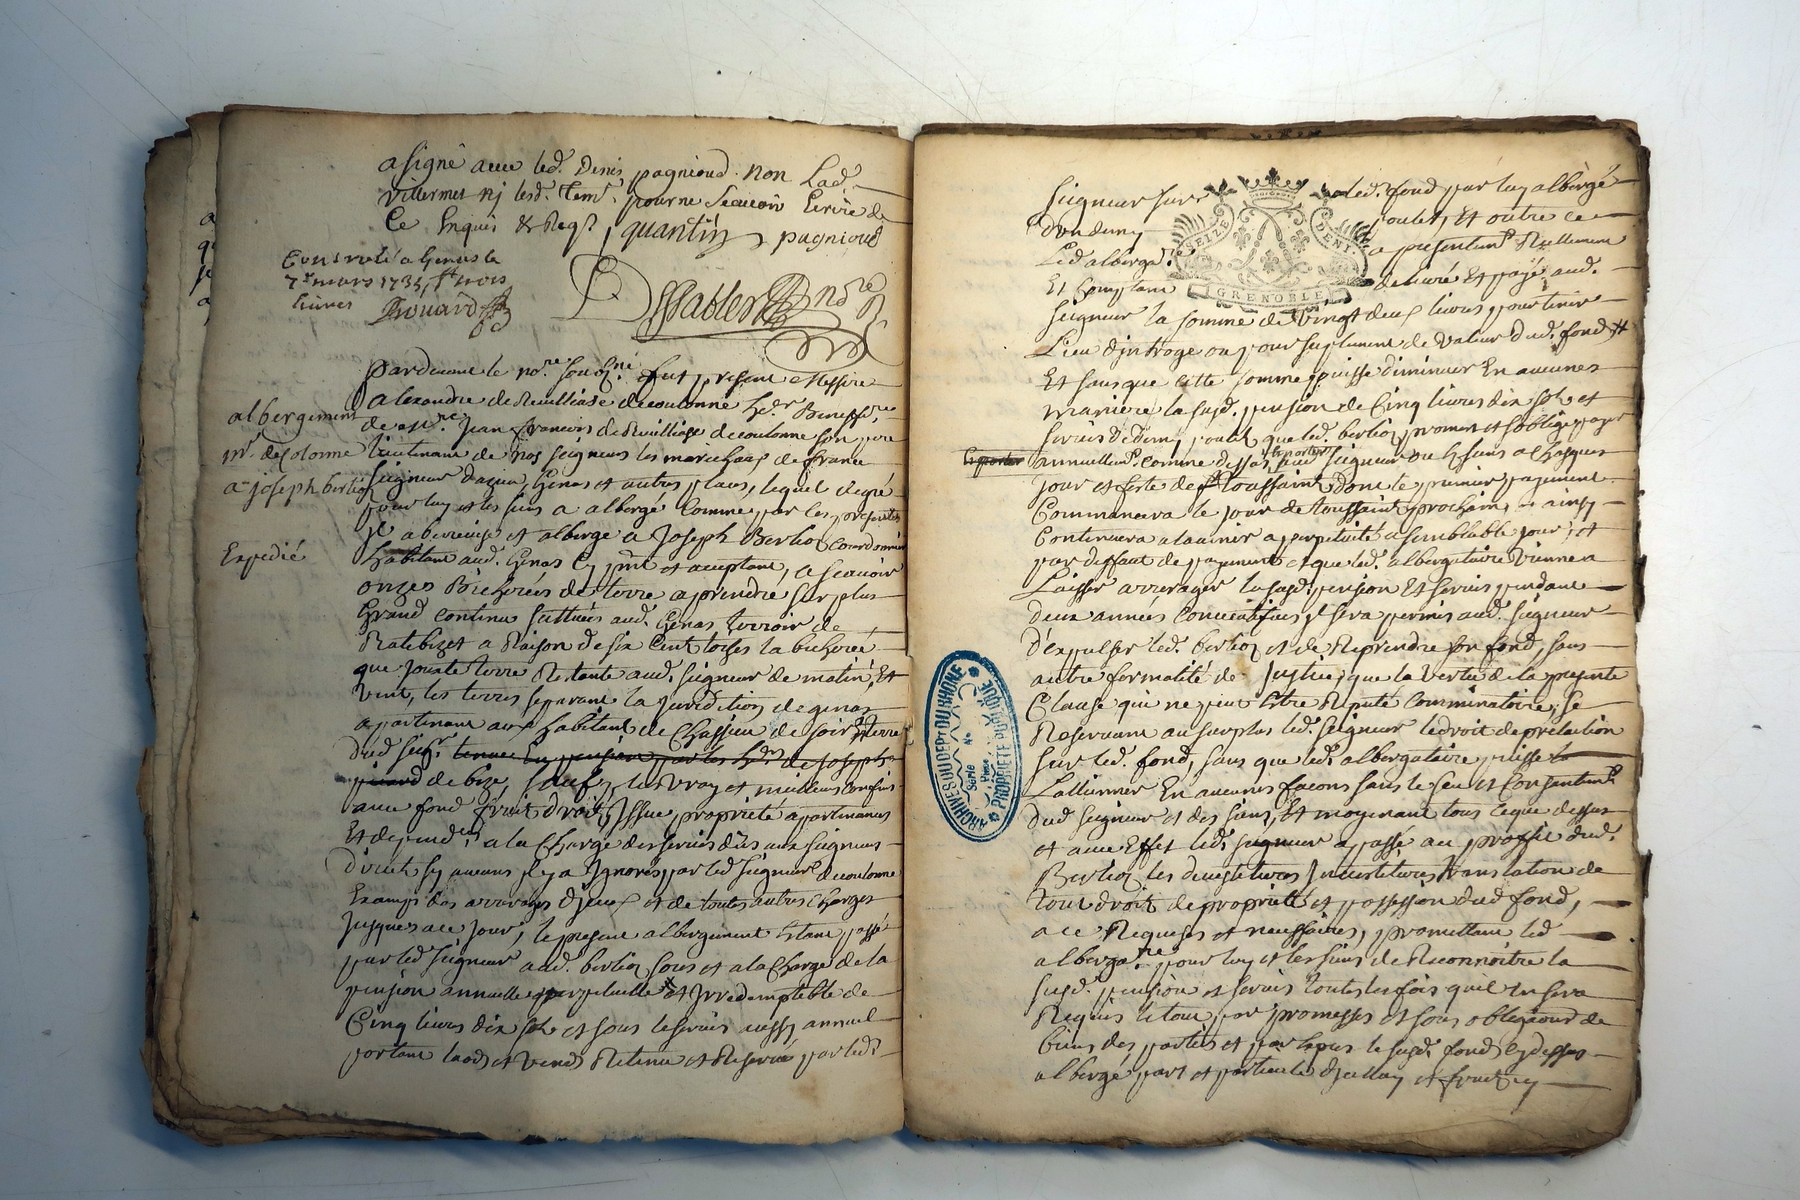 a signé avec led. Denis pagnioud non Lad.
villermet nj lesd. tem. pour ne scavoir Ecrire de
Ce Enquis & Req.
quantin pagnioud
Controlé a Genas le
7e mars 1735
livres
Sablere nore
pardevant le nore souss.né fut present Messire
Alexandre de Reuilliase decoulonne hedr Beneffre
de Mre Jean francois de Reuilliase decoulonne son pere
Lieutenant de nos seigneurs les marechaux de france
Seigneur Genas et autres places, lequel degré
pour luy et les siens a albergé Comme par les presentes
Jl abenevise et alberge a Joseph Berlioz Courdonnier
habitant aud. Genas Cy pnt et acceptant, a scavoir
onzes Bicherées de terre a prendre sur plus
Grand continu scittuées aud. Genas terroir de
Ratabizet a Raison de six Cent toises la bicherée
que jouxte terre Restante aud. seigneur de matin, Et
vent, les terres separant la Juridition de genas
apartenant aux habitants de Chassieu de soir terre
dud seigr. tenue En pension par les hers de Joseph
picard de bize, sauf les vray et meilleurs confins
avec fond fruit droits Jssue propriété apartenances
Et depend.es a la Charge des servis dûs aux seigneurs
directs sy aucuns Jl y a Jgnorés par led seigneur decoulonne
Examps des arrerages Djceux et de toutes autres Charges
Jusques a ce jour, le present albergement Etant passé
par led seigneur aud. berlioz sous et a la Charge de la
pension annuelle perpetuelle et Jrredemptible de
Cinq livres dix sols et sous le servis aussy annuel
portant laods et vends Retenu et Reservé par led.
albergement
mr. de Colonne
a joseph berlioz
Expedié
Seigneur sur led. fond par luy albergé
D'un demy poulet, Et outre ce
Led alberga.re a presentemt. Reellement
Et Comptant delivré Et payé aud.
SEIZE DENI
GRENOBLE
seigneur la somme de vingt deux livres pour tenir
Lieu d'introge ou pour suplement de valeur dud. fond
Et sans que cette somme puisse diminuer En aucunes
maniere la susd. pension de Cinq livres dix sols et
servis de demy poulet que led. berlioz promet et s'oblige payer
Et porter annuellemt. comme dessus et porter aud seigneur ou Es siens a Chasques
jour et feste de toussaint dont le premier payement
Commancera le jour de toussaint prochain, ainsy
Continuera alavenir a perpetuité a semblable jour, et
par deffaut de payement et que led. albergataire viennera
Laisser arrerager la susd. pension Et servis pendant
deux années Consecutives Jl sera permis aud. seigneur
D'expulser led. berlioz et de Reprendre son fond, sans
autre formalité de Justice, que la vertu de la presente
Clause qui ne peut Etre Reputé Comminatoire, se
Reservant au surplus led. seigneur le droit de prelation
sur led. fond, sans que led. albergataire puisse
Laliener En aucunes facons sans le sceu et Consentemt.
dud seigneur et des siens, Et moyenant tous ceque dessus
et avec Effet led. seigneur a passé au proffit dud.
Berlioz les devestitures Jnvestitures translation de
tout droit de proprieté et possession dud fond,
a ce Requises et necessaires, promettant led
alberga.re pour luy et les siens de Reconnoitre la
susd. pension et servis toutes les fois quil En sera
Requis le tout par promesses et sous obligaions de
biens des parties et par Expres le susd. fond Cydessus
albergé part et particule Djcelluy et fruit
ARCHIVES DU DEPT DU RHONE
PROPRIÉTÉ PUBLIQUE
Série
No